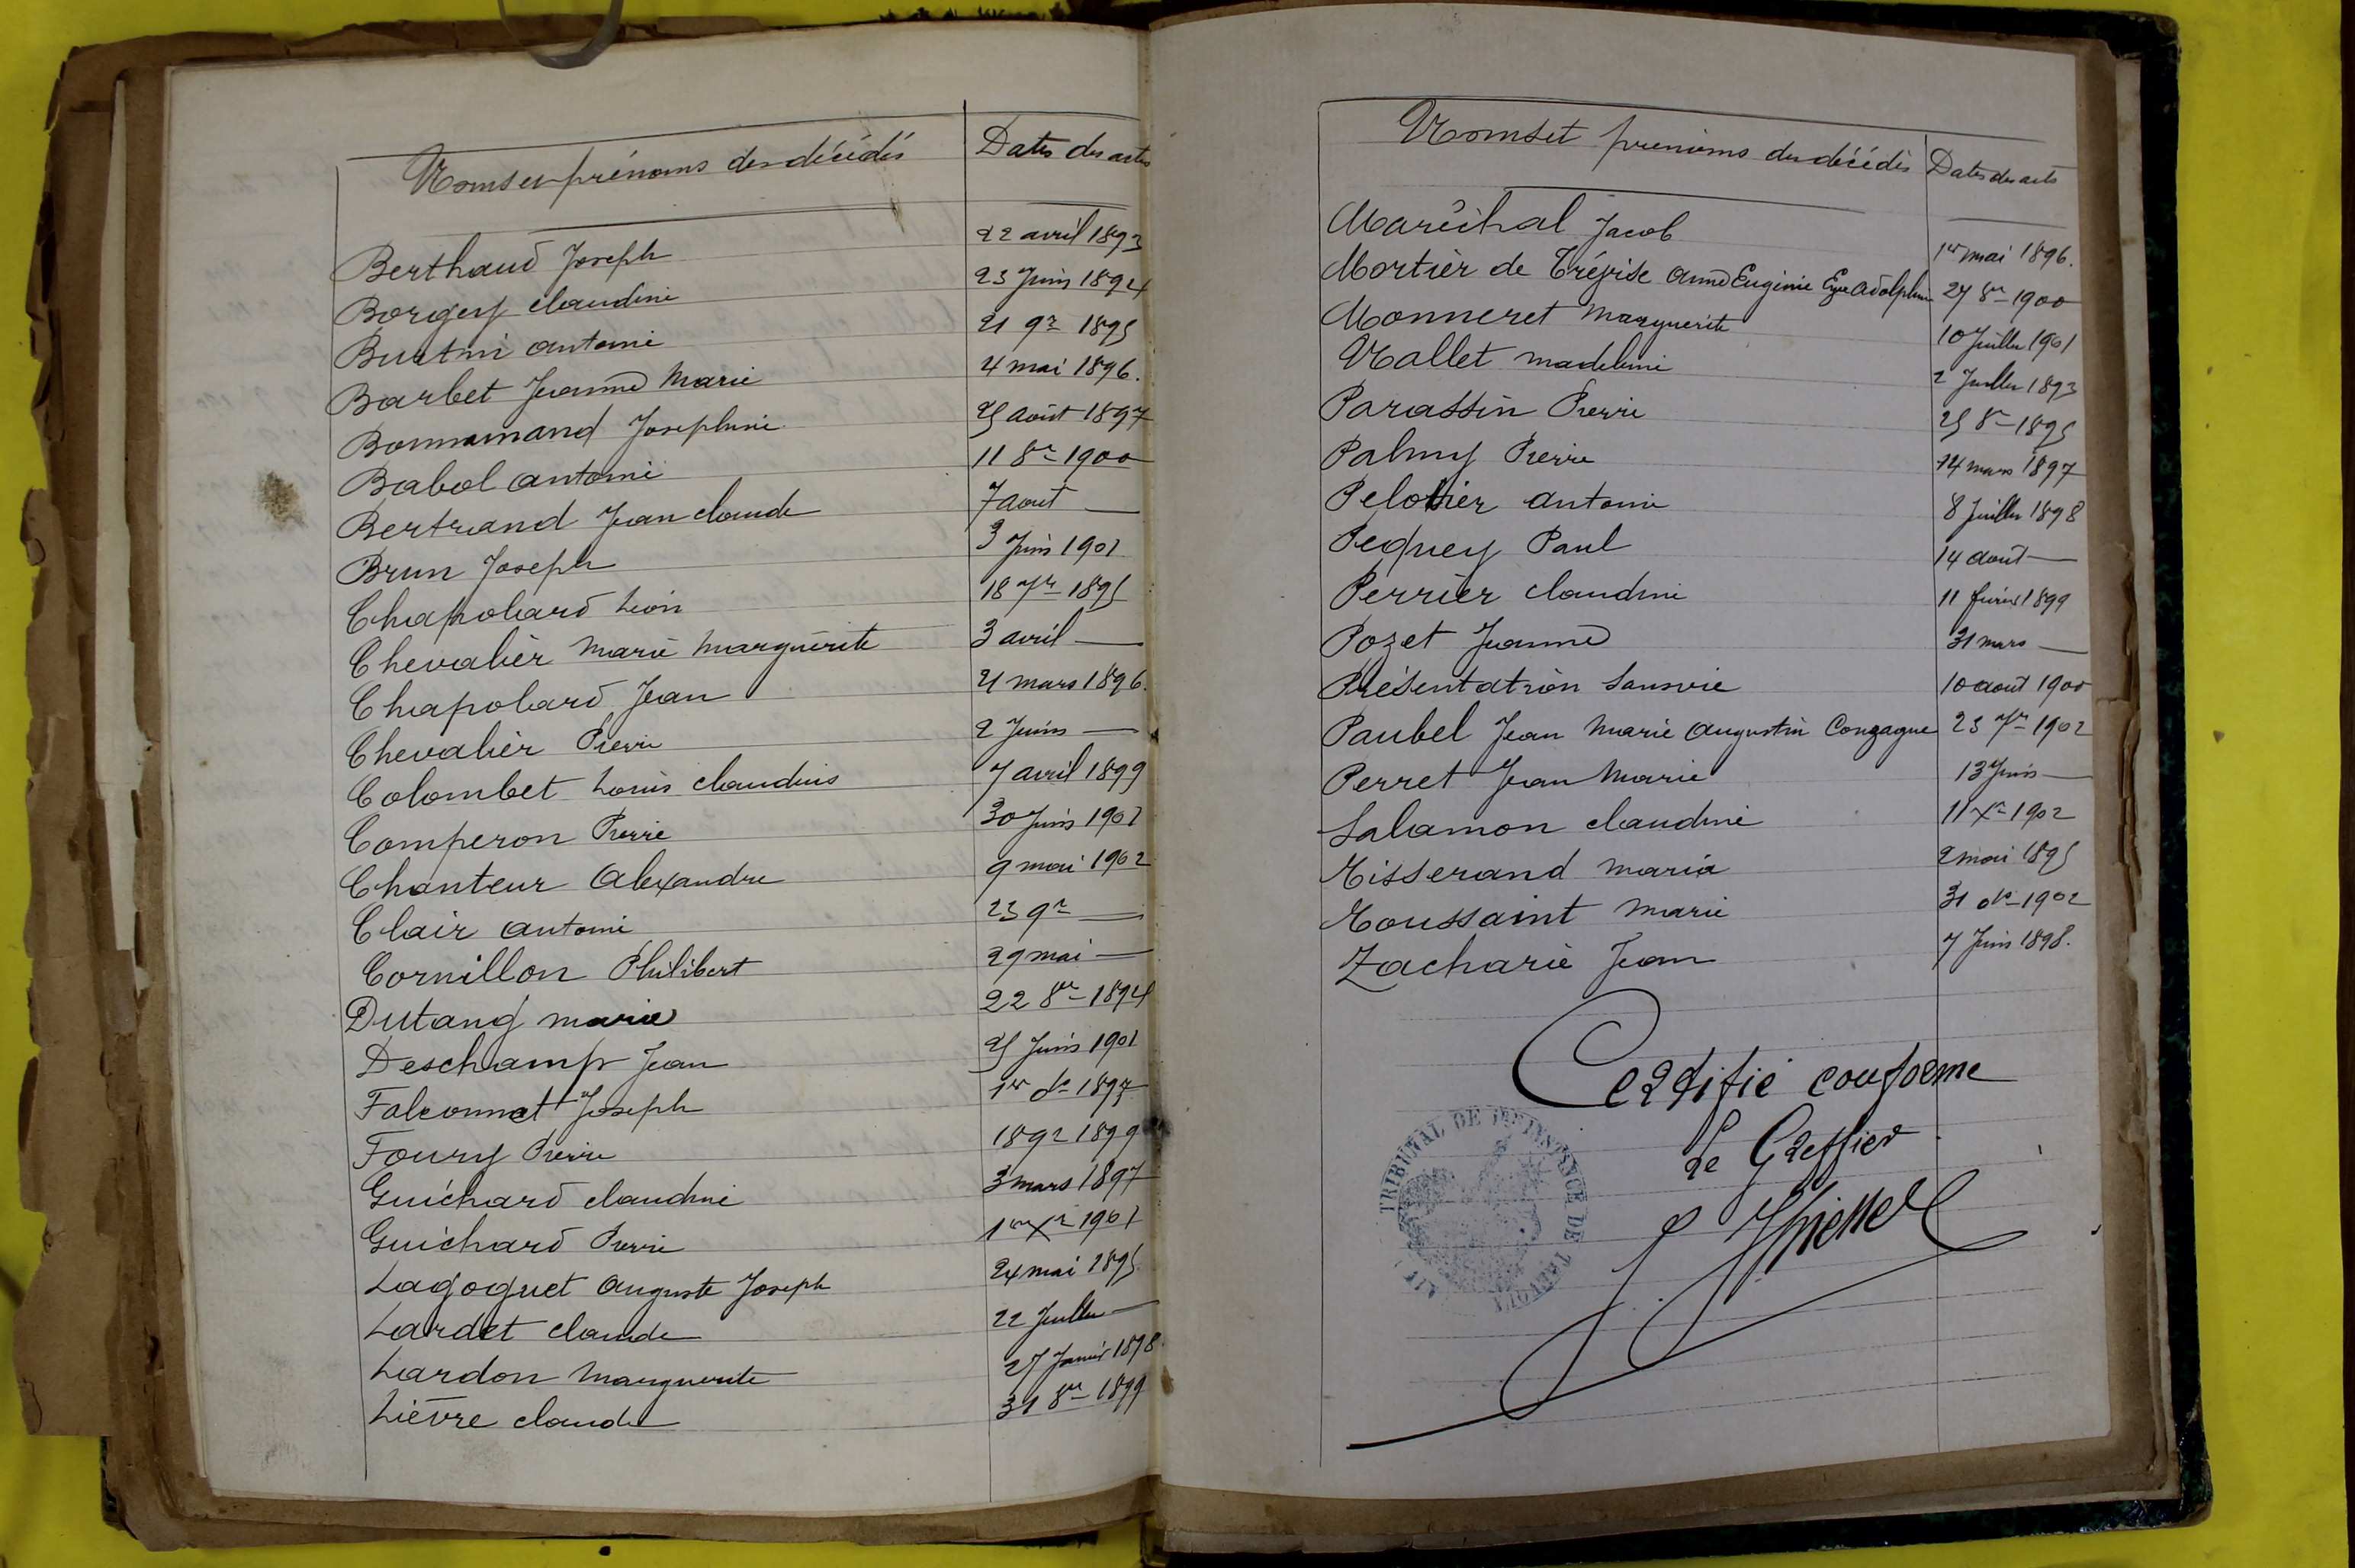 Noms et prénoms des décédés
Dates des actes
Berthaud Joseph 22 avril 1893
Borgey claudine 23 Juin 1894
Burtin antoine 21 9re 1895
Barbet Jeanne Marie 4 mai 1896.
Bonnamand Josephine 25 août 1897
Babol antoine 11 8re 1900
Bertrand Jean claude 7 aout —
Brun Joseph 3 Juin 1901
Chapolard Léon 18 7re 1895
Chevalier Marie Marguerite 3 avril —
Chapolard Jean 21 mars 1896.
Chevalier Pierre 2 Juin —
Colombet Louis claudius 7 avril 1899
Comperon Pierre 30 Juin 1901
Chanteur Alexandre 9 mai 1902
Clair antoine 23 9re —
Cornillon Philibert 29 mai —
Dutang marie 22 8re 1894
Deschamp Jean 25 Juin 1901
Falconnet Joseph 1er de 1897
Foury Pierre 18 9r 1899
Guichard claudine 3 mars 1897
Guichard Pierre 1er Xre 1901
Lagoguet Auguste Joseph 24 mai 1895
Lardet claude 22 Juillet —
Lardon Marguerite 27 Janvier 1898.
Lièvre claude 31 8re 1899
Noms et prénoms des décédés
Dates des acts
Maréchal Jacob 1er mai 1896.
Mortier de Trévise Anne Eugénie Eve Adolphine 27 8re 1900
Monneret Marguerite 10 Juillet 1901
Nallet madeleine 2 Juillet 1893
Parassin Pierre 25 8re 1895
Palmy Pierre 14 mars 1897
Pelossier antoine 8 Juillet 1898
Pequey Paul 14 aout —
Perrier claudine 11 février 1899
Pozet Jeanne 31 mars —
Présentation sans vie 10 aout 1900
Paubel Jean Marie Augustin Gonzague 23 7re 1902
Perret Jean Marie 13 Juin —
Salamon claudine 11 Xre 1902
Tisserand Maria 2 mai 1895
Toussaint Marie 31 de 1902
Zacharie Jean 7 Juin 1898.
Certifié conforme
Le Greffier
TRIBUNAL DE 1ERE INSTANCE DE TREVOUX